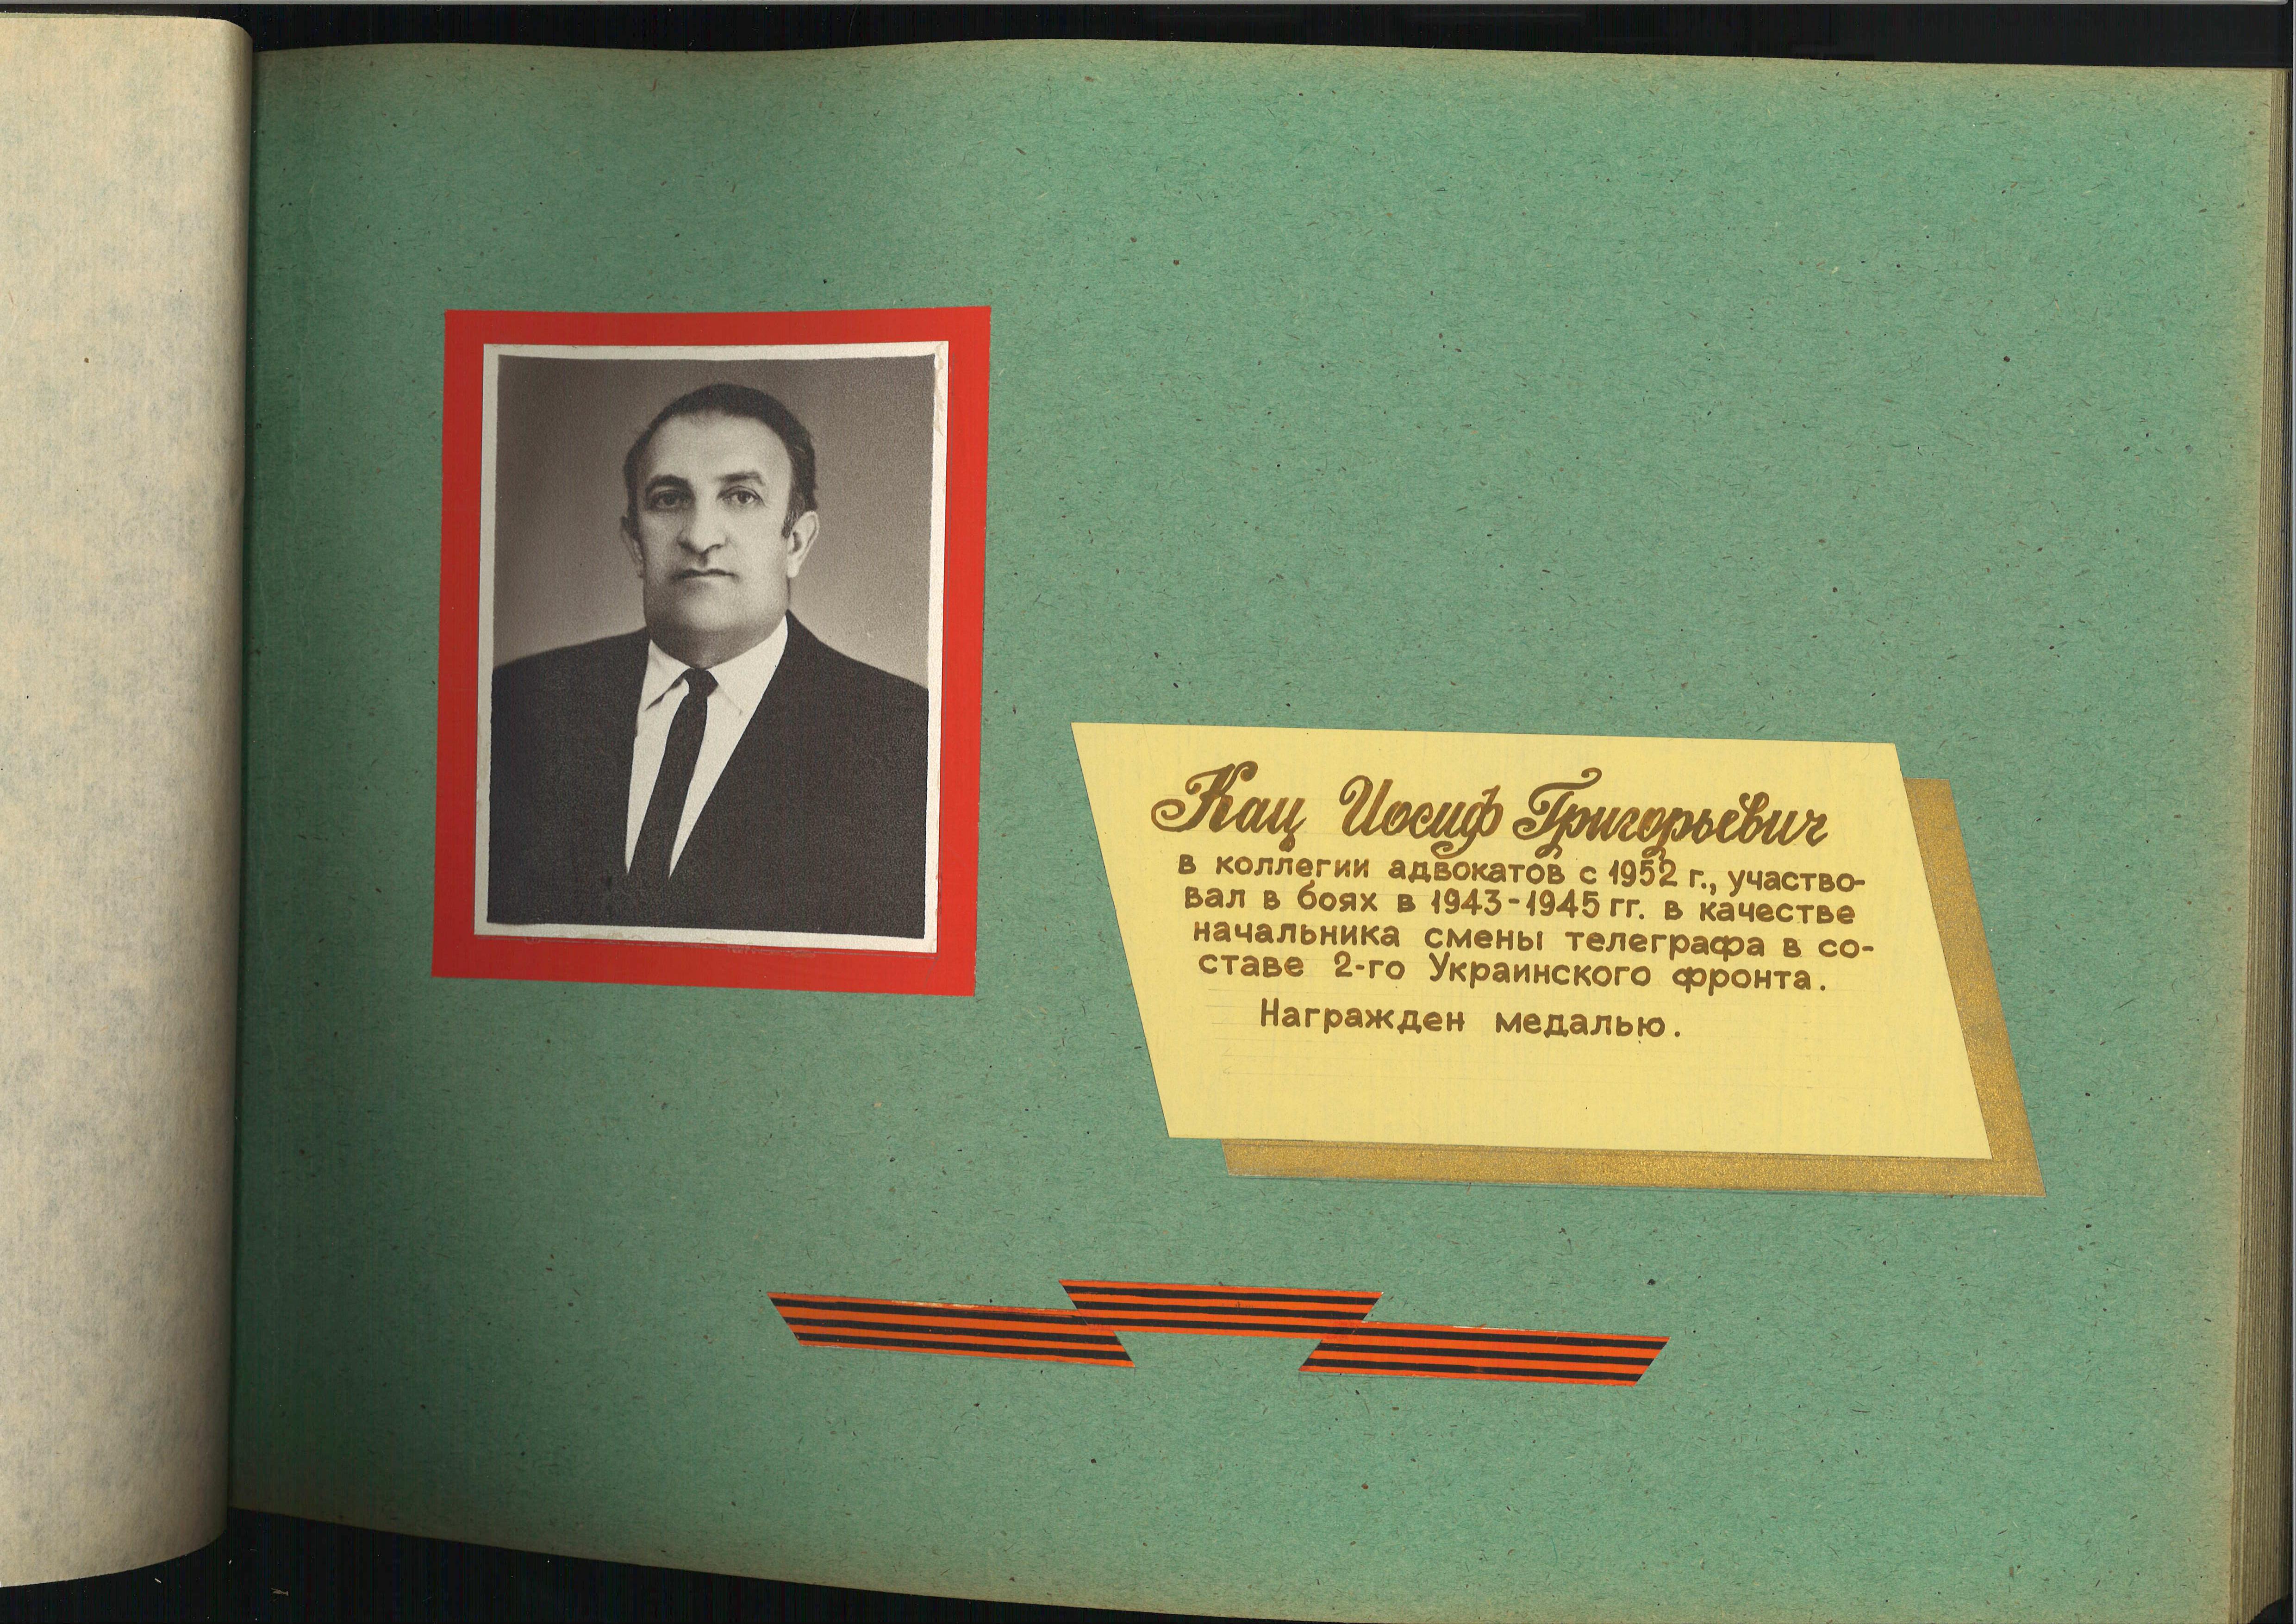 Кац Иосиф Григорьевич
в коллегии адвокатов с 1952 г., участво-
вал в боях в 1943-1945 гг. в качестве
начальника смены телеграфа в со-
ставе 2-го Украинского фронта.
Награжден медалью.